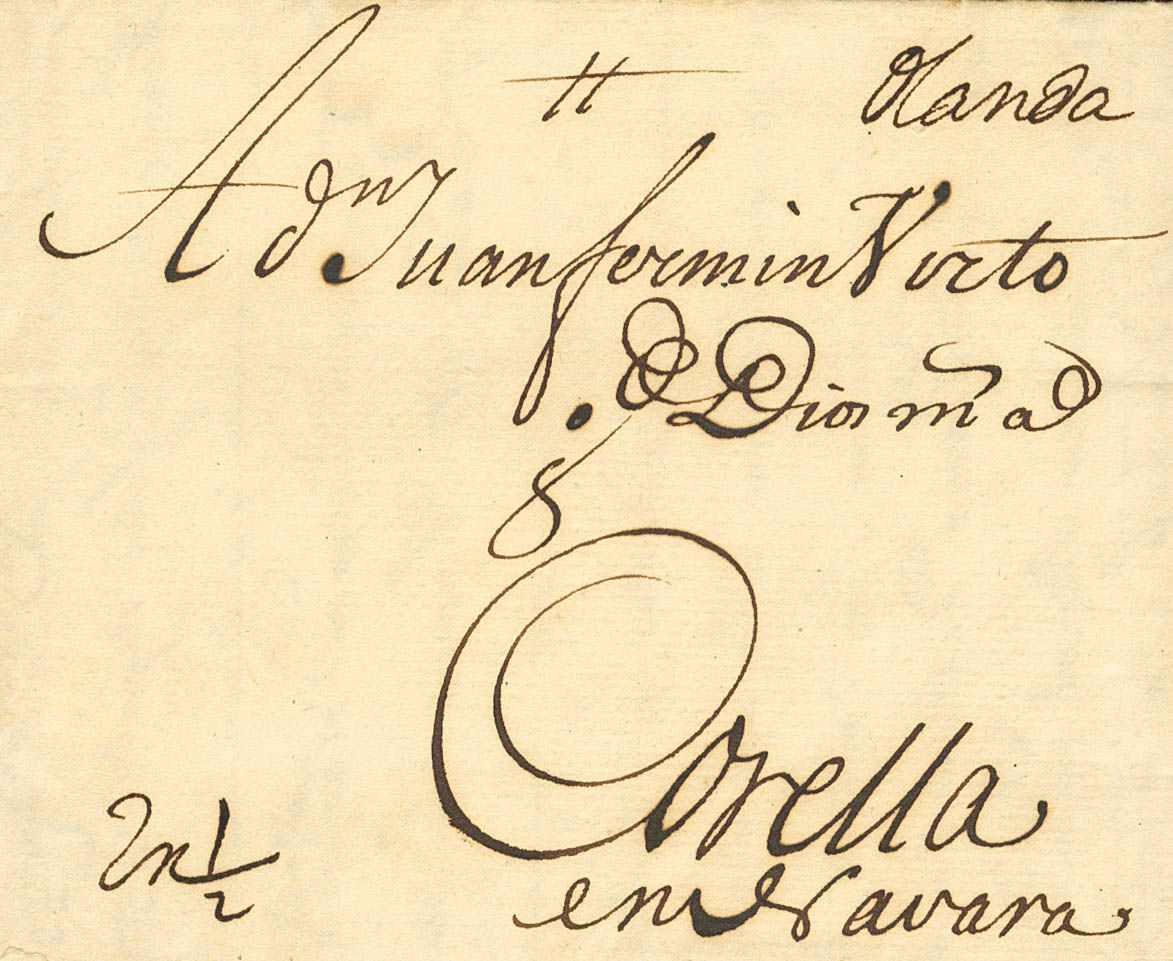 Olanda
A dn Juan fermin Virto
G Dios m a
Corella
en Navara
2 R 1/2